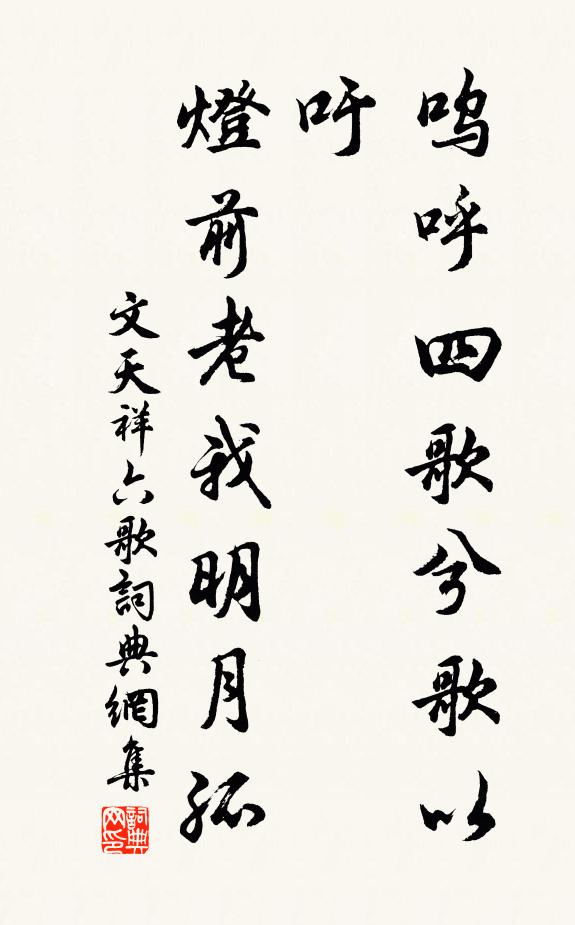 嗚呼四歌兮歌以
吁
燈前老我明月孤
文天祥六歌詞典網集
詞典
网印